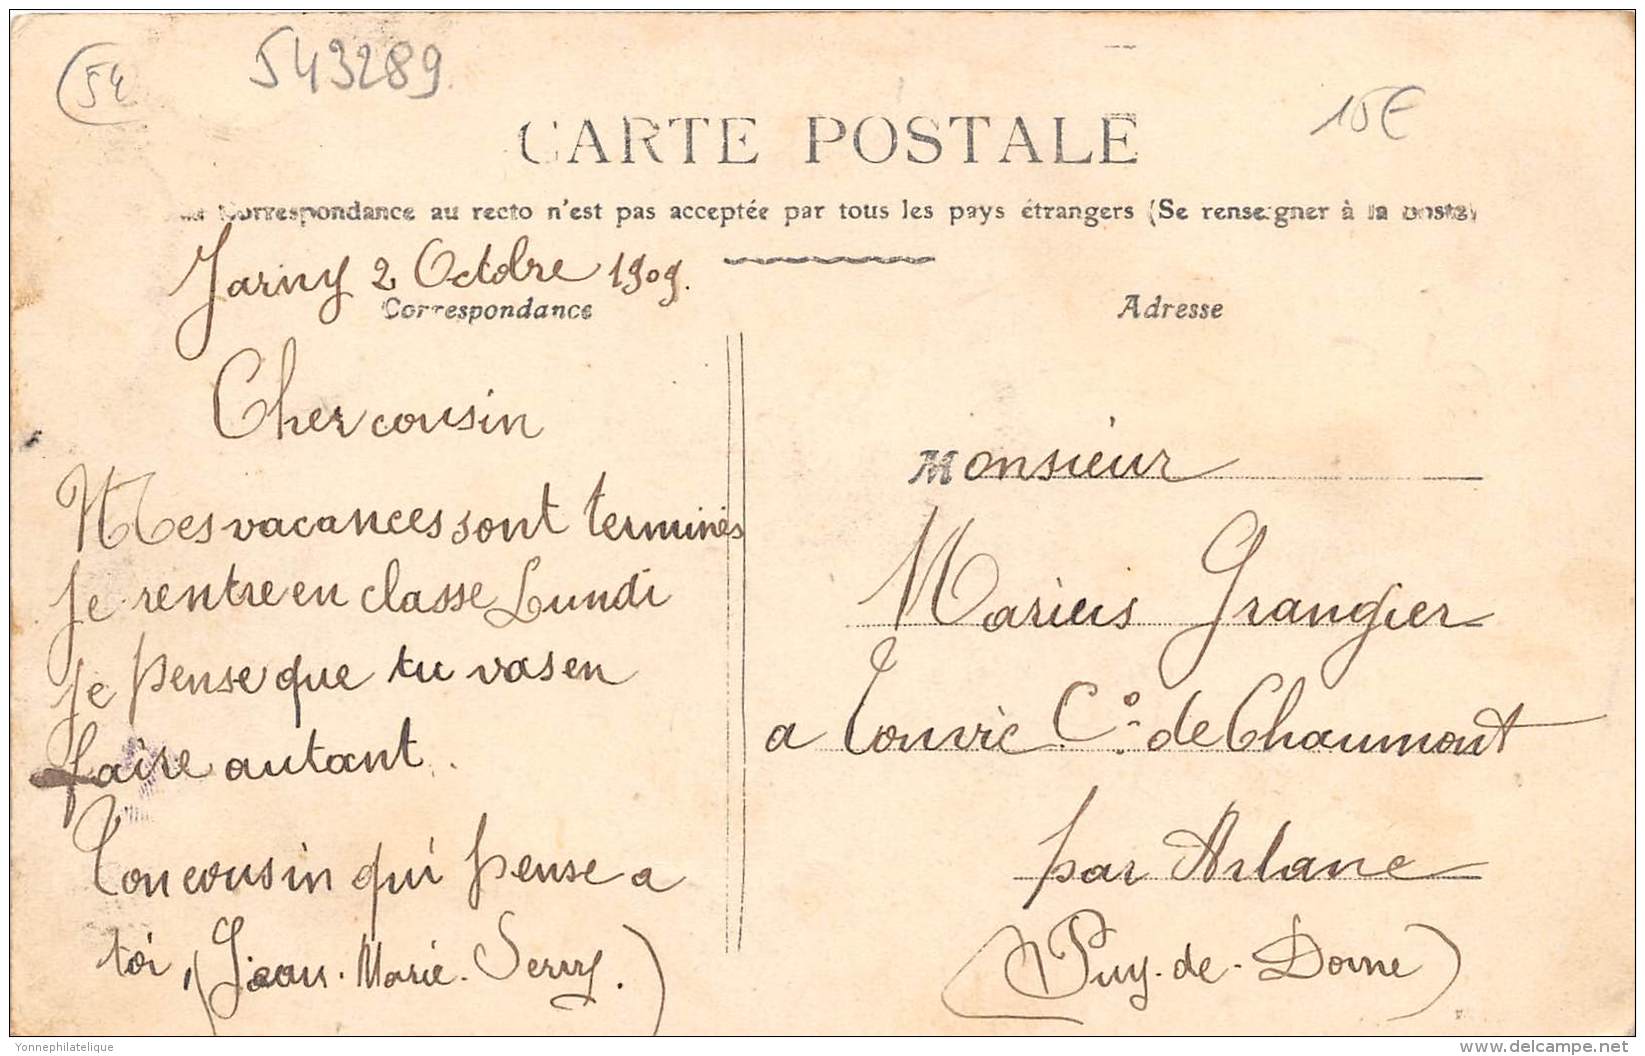 54
543289
15€
CARTE POSTALE
La Correspondance au recto n'est pas acceptée par tous les pays étrangers (Se renseigner à la poste)
Jarny 2 Octobre 1909.
Correspondance
Adresse
Cher cousin
Mes vacances sont terminés
Je rentre en classe Lundi
Je pense que tu vas en
faire autant.
Ton cousin qui pense a
toi, (Jean-Marie Servy.)
Monsieur
Marius Grangier
a Touvic C.º de Chaumont
par Arlanc
(Puy-de-Dome)
Yonnephilatelique
delcampe.net